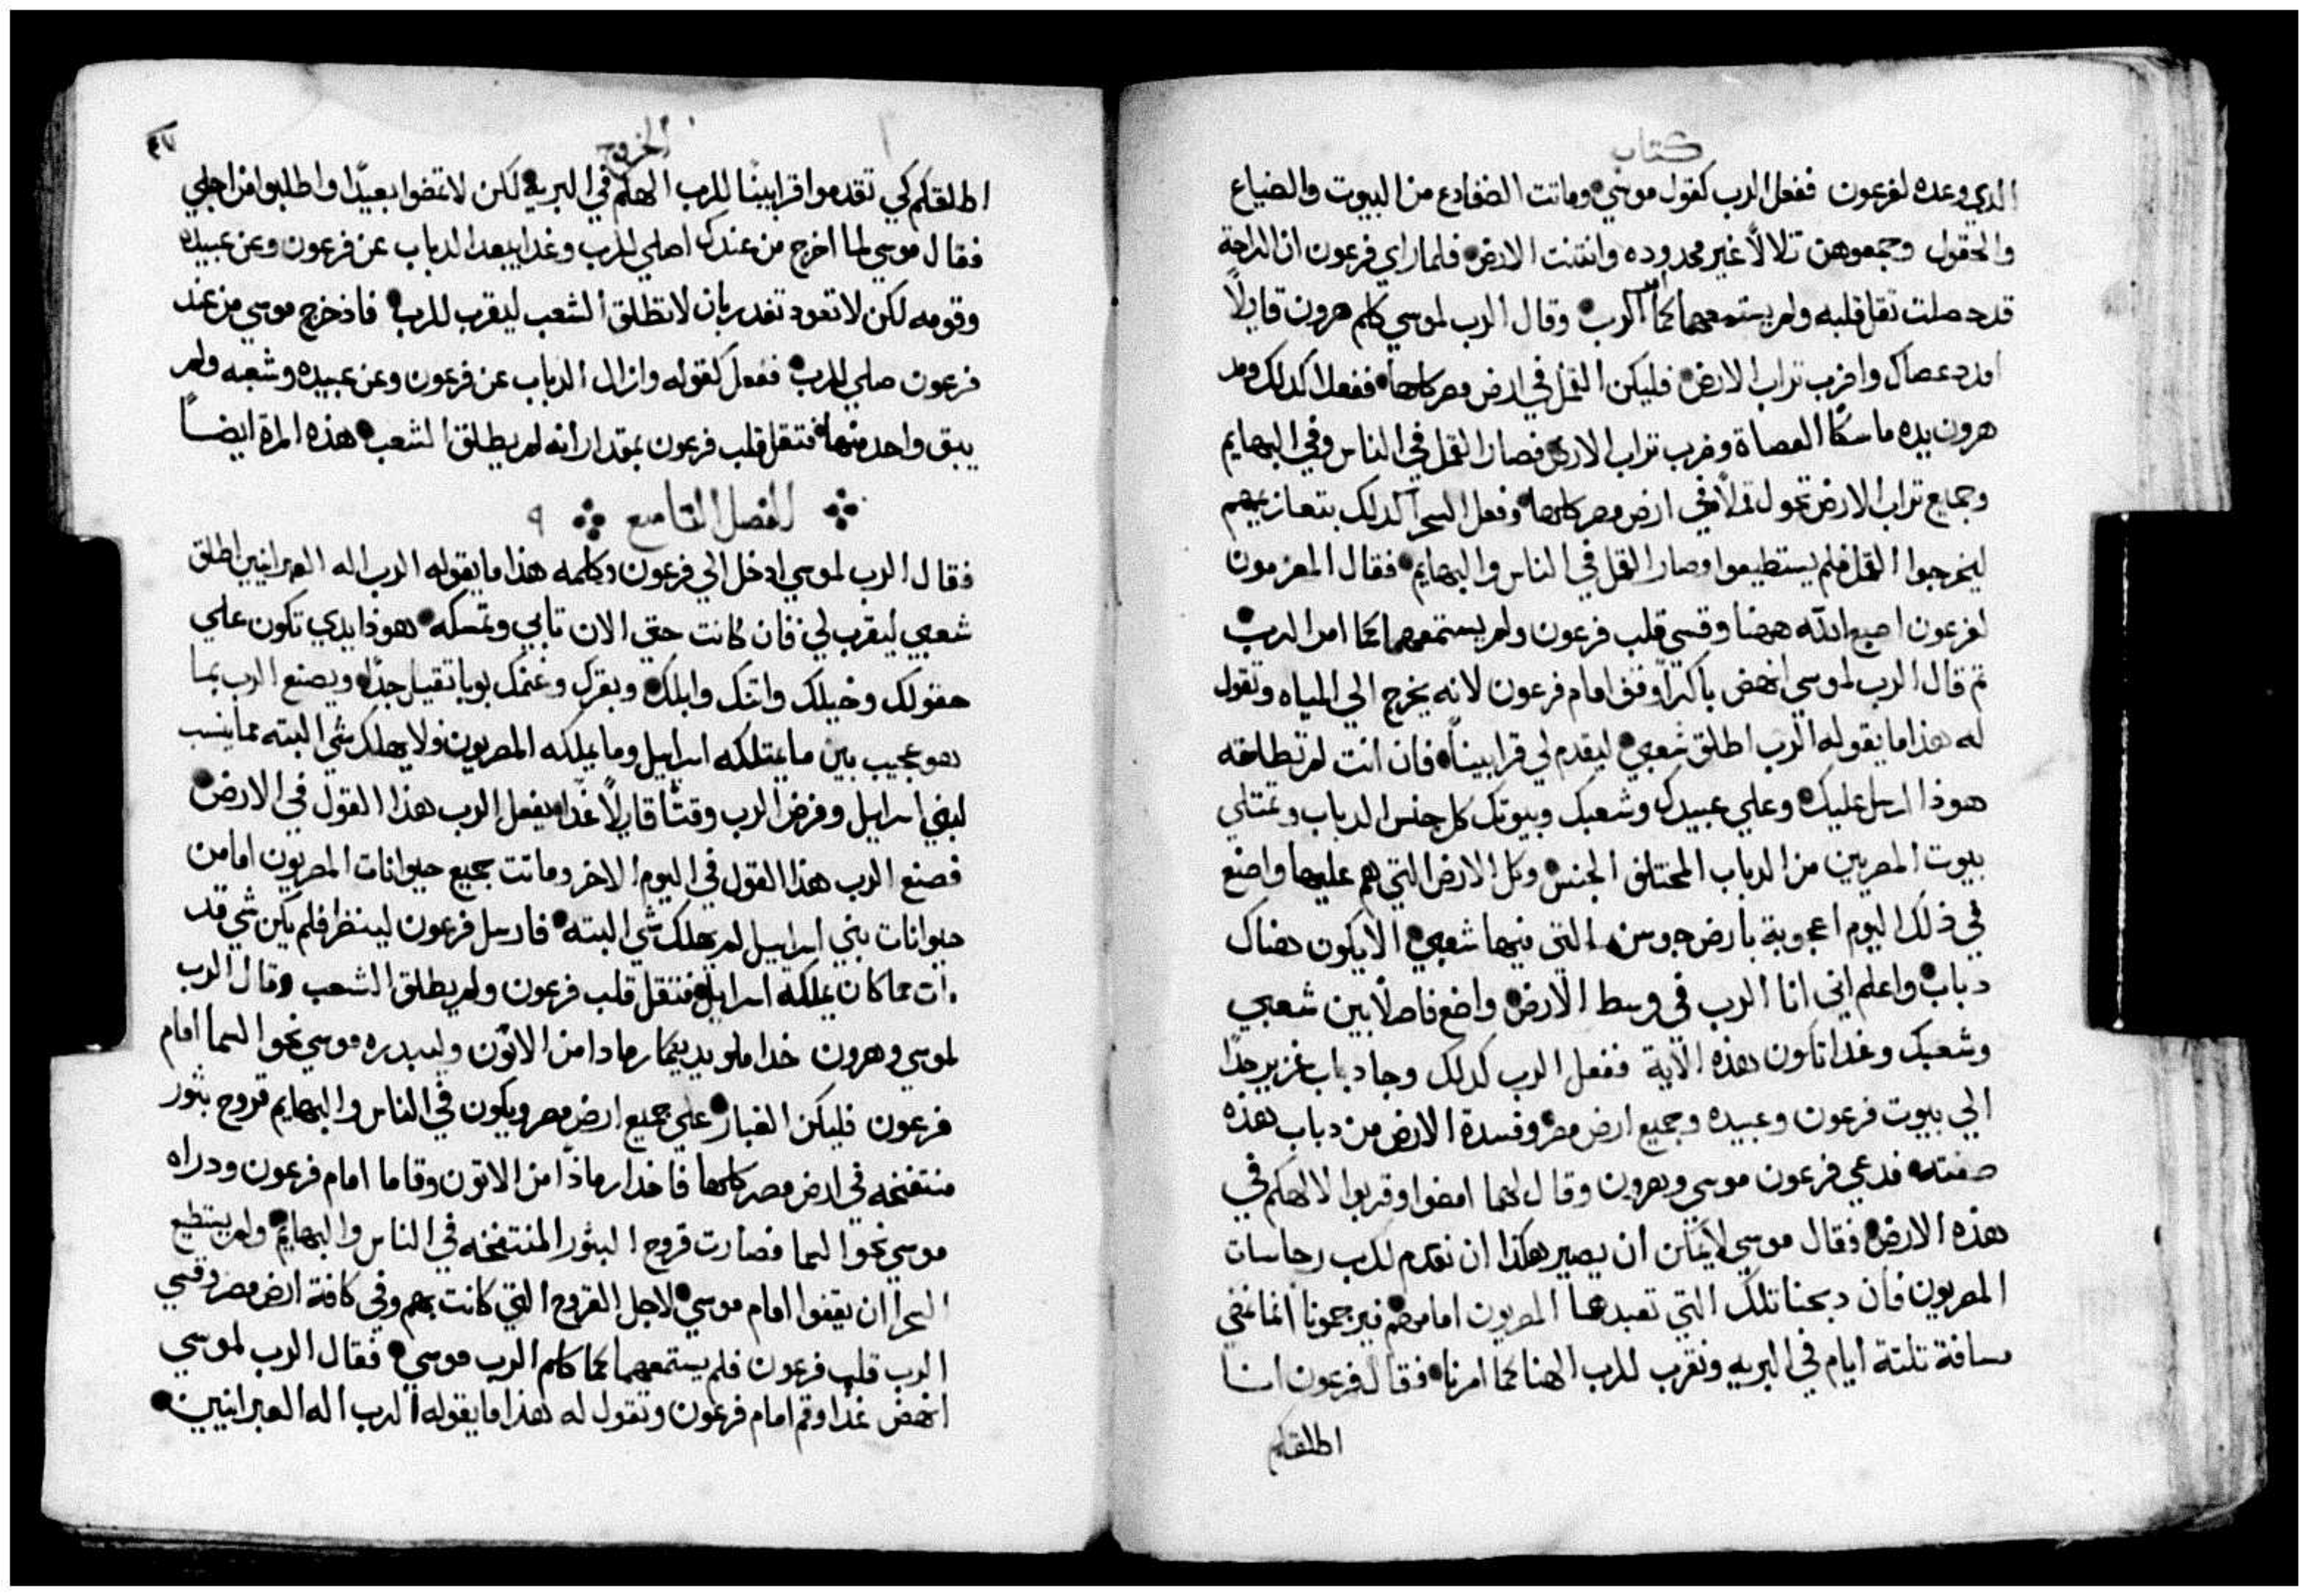 كتاب
الدي وعده لفرعون ففعل الرب كقول موسي وماتت الضفادع من البيوت والضياع
والحقول وجمعوهن تلالاً غير محدوده وانتنت الارض فلما راي فرعون ان الراحة
قد حصلت ثقل قلبه ولم يستمعهما كما امر الرب وقال الرب لموسي كلم هرون قايلاً
امدد عصاك واضرب تراب الارض فليكن القمل في ارض مصر كلها ففعلا كدلك ومد
هرون يده ماسكًا العصاة وضرب تراب الارض فصار القمل في الناس وفي البهايم
وجميع تراب الارض تحول قملاً في ارض مصر كلها وفعل السحرا كدلك بتعازيمهم
ليخرجوا القمل فلم يستطيعوا وصار القمل في الناس والبهايم فقال المعزمون
لفرعون اصبع الله ههنا وقسي قلب فرعون ولم يستمعهما كما امر الرب
تم قال الرب لموسي انهض باكرًا وقف امام فرعون لانه يخرج الي المياه وتقول
له هذا ما يقوله الرب اطلق شعبي ليقدم لي قرابيناً فان انت لم تطلقه
هوذا ارسل عليك وعلي عبيدك وشعبك وبيوتك كل جنس الدباب وتمتلي
بيوت المصريين من الدباب المختلف الجنس وكل الارض التي هم عليها واضع
في ذلك اليوم اعجوبة بارض جوسن التي فيها شعبي الا يكون هناك
دباب واعلم اني انا الرب في وسط الارض واضع فاصلاً بين شعبي
وشعبك وغدا تكون هذه الاية ففعل الرب كدلك وجا دباب غزير جدًا
الي بيوت فرعون وعبيده وجميع ارض مصر وفسدة الارض من دباب هذه
صفته فدعي فرعون موسي وهرون وقال لهما امضوا وقربوا لالهكم في
هذه الارض فقال موسي لا يمكن ان يصير هكذا ان نقدم للرب رجاسات
المصريون فان دبحنا تلك التي تعبدها المصريون امامهم فيرجمونا انما نمضي
مسافة تلتة ايام في البريه ونقرب للرب الهنا كما امرنا فقال فرعون انا
اطلقكم
الخروج
٤٧
اطلقكم كي تقدموا قرابينًا للرب الهكم في البريه لكن لا تمضوا بعيدًا واطلبوا من اجلي
فقال موسي لما اخرج من عندك اصلي للرب وغدا يبعد الدباب عن فرعون وعن عبيده
وقومه لكن لا تعود تغدر بان لا تطلق الشعب ليقرب للرب فاذ خرج موسي من عند
فرعون صلي للرب ففعل كقوله وازال الدباب عن فرعون وعن عبيده وشعبه ولم
يبق واحد منها فتقل قلب فرعون بمقدار انه لم يطلق الشعب هذه المرة ايضاً
الفصل التاسع ٩
فقال الرب لموسي ادخل الي فرعون وكلمه هذا ما يقوله الرب اله العبرانيين اطلق
شعبي ليقرب لي فان كانت حتي الان تابي وتمسكه هوذا يدي تكون علي
حقولك وخيلك واتنك وابلك وبقرك وغنمك بوبا تقيل جدًا ويصنع الرب بما
هو عجيب بين ما يمتلكه اسراييل وما يملكه المصريون ولا يهلك شي البته مما ينسب
لبني اسراييل وفرض الرب وقتًا قايلاً غدا يفعل الرب هذا القول في الارض
فصنع الرب هذا القول في اليوم الاخر وماتت جميع حيوانات المصريون اما من
حيوانات بني اسراييل لم يهلك شي البته فارسل فرعون لينظر فلم يكن شي قد
مات مما كان يملكه اسراييل فتقل قلب فرعون ولم يطلق الشعب وقال الرب
لموسي وهرون خدا ملو يديكما رمادا من الاتون وليبدره موسي نحو السما امام
فرعون فليكن الغبار علي جميع ارض مصر ويكون في الناس والبهايم قروح بثور
منتفخه في ارض مصر كلها فاخدا رمادًا من الاتون وقاما امام فرعون ودراه
موسي نحو السما فصارت قروح البثور المنتفخه في الناس والبهايم ولم يستطيع
السحرا ان يقفوا امام موسي لاجل القروح التي كانت بهم وفي كافة ارض مصر وقسي
الرب قلب فرعون فلم يستمعهما كما كلم الرب موسي فقال الرب لموسي
انهض غدًا وقم امام فرعون وتقول له هذا ما يقوله الرب اله العبرانيين